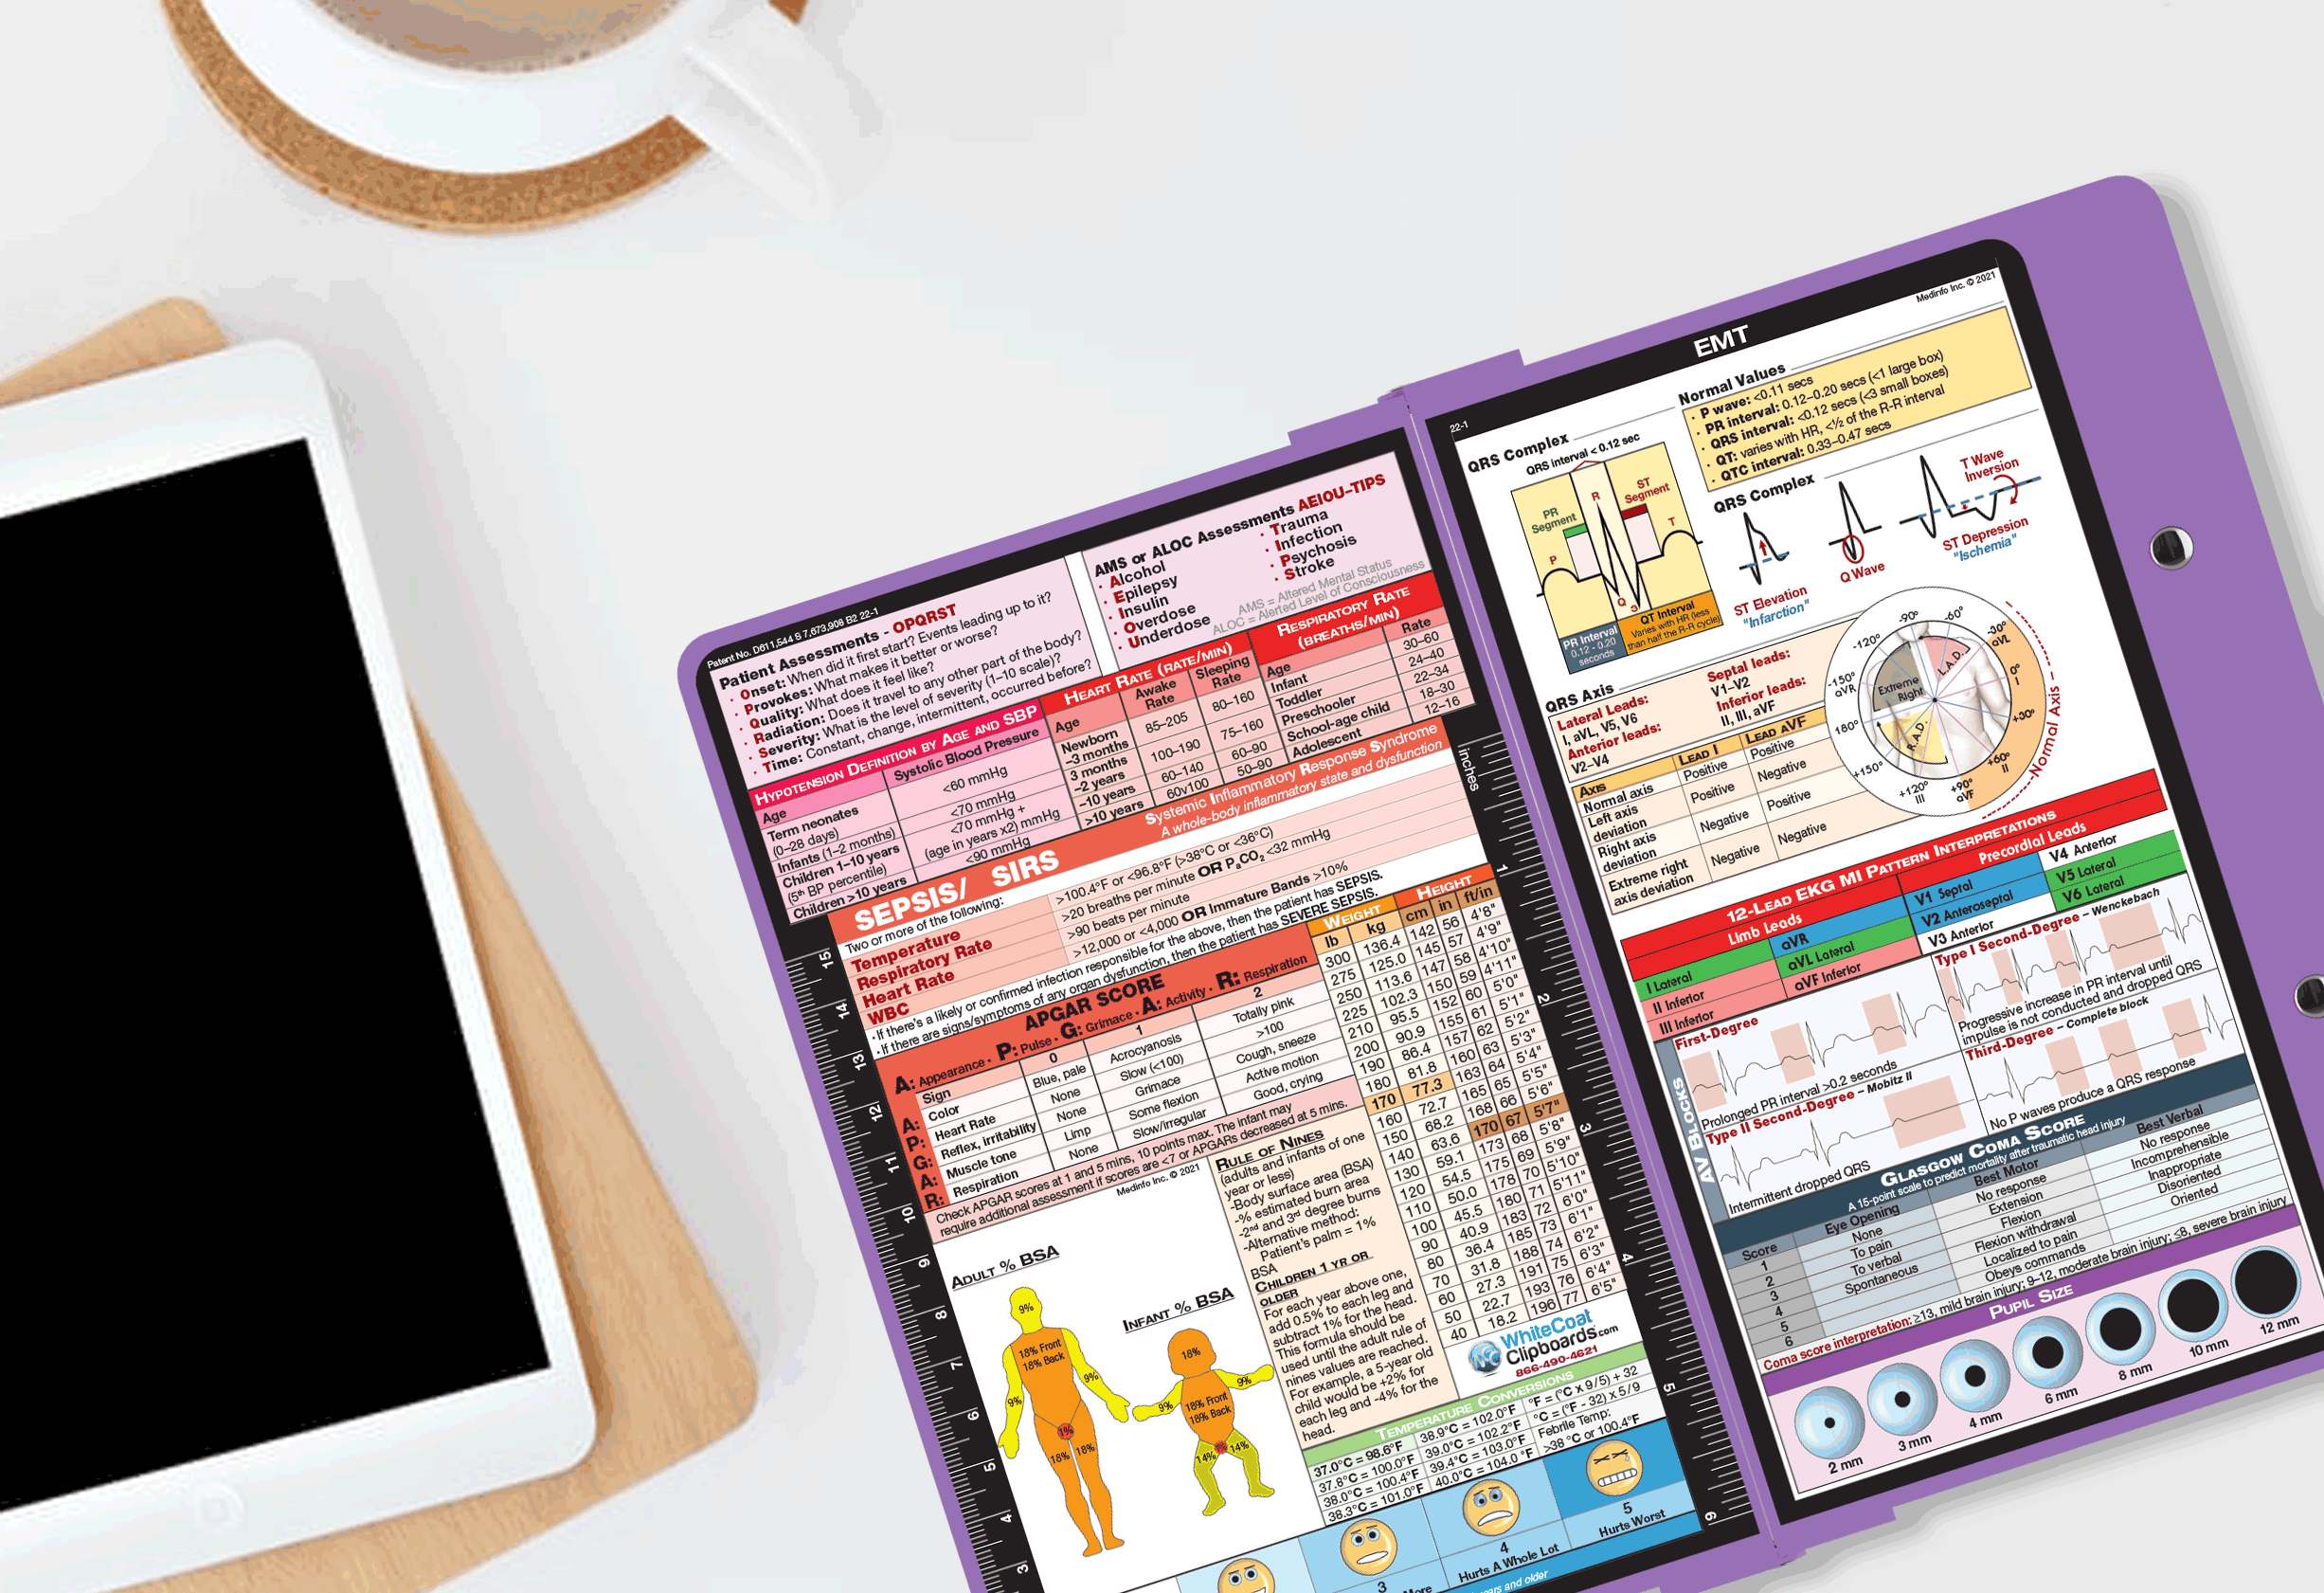 Patent No. D611,544 S 7,673,908 B2 22-1
Patient Assessments - OPQRST
· Onset: When did it first start? Events leading up to it?
· Provokes: What makes it better or worse?
· Quality: What does it feel like?
· Radiation: Does it travel to any other part of the body?
· Severity: What is the level of severity (1–10 scale)?
· Time: Constant, change, intermittent, occurred before?
AMS or ALOC Assessments AEIOU–TIPS
· Alcohol
· Epilepsy
· Insulin
· Overdose
· Underdose
· Trauma
· Infection
· Psychosis
· Stroke
AMS = Altered Mental Status
ALOC = Alerted Level of Consciousness
HYPOTENSION DEFINITION BY AGE AND SBP
Age Systolic Blood Pressure
Term neonates (0–28 days) <60 mmHg
Infants (1–2 months) <70 mmHg
Children 1–10 years (5th BP percentile) <70 mmHg + (age in years x2) mmHg
Children >10 years <90 mmHg
HEART RATE (RATE/MIN)
Age Awake Rate Sleeping Rate
Newborn –3 months 85–205 80–160
3 months –2 years 100–190 75–160
–10 years 60–140 60–90
>10 years 60v100 50–90
RESPIRATORY RATE (BREATHS/MIN)
Age Rate
Infant 30–60
Toddler 24–40
Preschooler 22–34
School-age child 18–30
Adolescent 12–16
SEPSIS/ SIRS
Systemic Inflammatory Response Syndrome
A whole-body inflammatory state and dysfunction
Two or more of the following:
Temperature >100.4°F or <96.8°F (>38°C or <36°C)
Respiratory Rate >20 breaths per minute OR PaCO2 <32 mmHg
Heart Rate >90 beats per minute
WBC >12,000 or <4,000 OR Immature Bands >10%
·If there's a likely or confirmed infection responsible for the above, then the patient has SEPSIS.
·If there are signs/symptoms of any organ dysfunction, then the patient has SEVERE SEPSIS.
APGAR SCORE
A: Appearance · P: Pulse · G: Grimace · A: Activity · R: Respiration
Sign 0 1 2
A: Color Blue, pale Acrocyanosis Totally pink
P: Heart Rate None Slow (<100) >100
G: Reflex, irritability None Grimace Cough, sneeze
A: Muscle tone Limp Some flexion Active motion
R: Respiration None Slow/irregular Good, crying
Check APGAR scores at 1 and 5 mins, 10 points max. The infant may
require additional assessment if scores are <7 or APGARs decreased at 5 mins.
Medinfo Inc. © 2021
WEIGHT HEIGHT
lb kg cm in ft/in
300 136.4 142 56 4'8"
275 125.0 145 57 4'9"
250 113.6 147 58 4'10"
225 102.3 150 59 4'11"
210 95.5 152 60 5'0"
200 90.9 155 61 5'1"
190 86.4 157 62 5'2"
180 81.8 160 63 5'3"
170 77.3 163 64 5'4"
160 72.7 165 65 5'5"
150 68.2 168 66 5'6"
140 63.6 170 67 5'7"
130 59.1 173 68 5'8"
120 54.5 175 69 5'9"
110 50.0 178 70 5'10"
100 45.5 180 71 5'11"
90 40.9 183 72 6'0"
80 36.4 185 73 6'1"
70 31.8 188 74 6'2"
60 27.3 191 75 6'3"
50 22.7 193 76 6'4"
40 18.2 196 77 6'5"
ADULT % BSA
9%
18% Front
18% Back
9%
9%
1%
18%
18%
INFANT % BSA
18%
9%
9%
18% Front
18% Back
1%
14%
14%
RULE OF NINES
(adults and infants of one
year or less)
-Body surface area (BSA)
-% estimated burn area
-2nd and 3rd degree burns
-Alternative method:
Patient's palm = 1%
BSA
CHILDREN 1 YR OR
OLDER
For each year above one,
add 0.5% to each leg and
subtract 1% for the head.
This formula should be
used until the adult rule of
nines values are reached.
For example, a 5-year old
child would be +2% for
each leg and -4% for the
head.
WhiteCoat
Clipboards.com
866-490-4621
TEMPERATURE CONVERSIONS
37.0°C = 98.6°F 38.9°C = 102.0°F °F = (°C x 9/5) + 32
37.8°C = 100.0°F 39.0°C = 102.2°F °C = (°F - 32) x 5/9
38.0°C = 100.4°F 39.4°C = 103.0°F Febrile Temp:
38.3°C = 101.0°F 40.0°C = 104.0 °F >38 °C or 100.4°F
3
More
4
Hurts A Whole Lot
5
Hurts Worst
years and older
15
14
13
12
11
10
9
8
7
6
5
4
3
inches
1
2
3
4
5
6
22-1
EMT
Medinfo Inc. © 2021
QRS Complex
QRS interval < 0.12 sec
PR Segment
ST Segment
P
R
Q
S
T
PR Interval
0.12 - 0.20
seconds
QT Interval
Varies with HR (less
than half the R-R cycle)
Normal Values
· P wave: <0.11 secs
· PR interval: 0.12–0.20 secs (<1 large box)
· QRS interval: <0.12 secs (<3 small boxes)
· QT: varies with HR, <½ of the R-R interval
· QTC interval: 0.33–0.47 secs
QRS Complex
ST Elevation
"Infarction"
Q Wave
T Wave
Inversion
ST Depression
"Ischemia"
QRS Axis
Lateral Leads:
I, aVL, V5, V6
Anterior leads:
V2–V4
Septal leads:
V1–V2
Inferior leads:
II, III, aVF
AXIS LEAD I LEAD AVF
Normal axis Positive Positive
Left axis deviation Positive Negative
Right axis deviation Negative Positive
Extreme right axis deviation Negative Negative
-90°
-60°
-30°
aVL
0°
I
+30°
+60°
II
+90°
aVF
+120°
III
+150°
180°
-150°
aVR
-120°
Extreme
Right
L.A.D.
R.A.D.
Normal Axis
12-LEAD EKG MI PATTERN INTERPRETATIONS
Limb Leads Precordial Leads
I Lateral aVR V1 Septal V4 Anterior
II Inferior aVL Lateral V2 Anteroseptal V5 Lateral
III Inferior aVF Inferior V3 Anterior V6 Lateral
AV BLOCKS
First-Degree
Prolonged PR interval >0.2 seconds
Type I Second-Degree – Wenckebach
Progressive increase in PR interval until
impulse is not conducted and dropped QRS
Type II Second-Degree – Mobitz II
Intermittent dropped QRS
Third-Degree – Complete block
No P waves produce a QRS response
GLASGOW COMA SCORE
A 15-point scale to predict mortality after traumatic head injury
Score Eye Opening Best Motor Best Verbal
1 None No response No response
2 To pain Extension Incomprehensible
3 To verbal Flexion Inappropriate
4 Spontaneous Flexion withdrawal Disoriented
5 Localized to pain Oriented
6 Obeys commands
Coma score interpretation: ≥13, mild brain injury; 9–12, moderate brain injury; ≤8, severe brain injury
PUPIL SIZE
2 mm
3 mm
4 mm
6 mm
8 mm
10 mm
12 mm